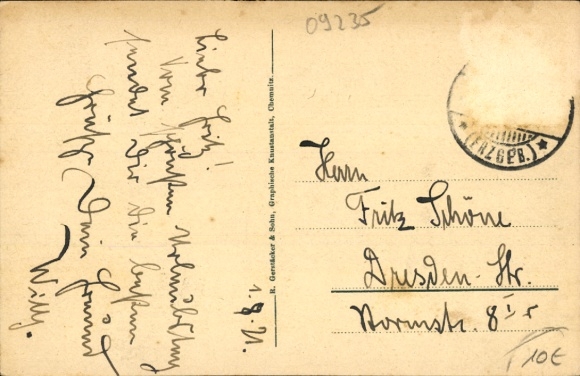 09235
Lieber Fritz!
Vom
sendet Dir die besten
Grüße Dein Freund
Willy.
1.8.21.
R. Gerstäcker & Sohn, Graphische Kunstanstalt, Chemnitz.
* (ERZGEB.) *
Herrn
Fritz Schöne
Dresden-Str.
8 I r
10€